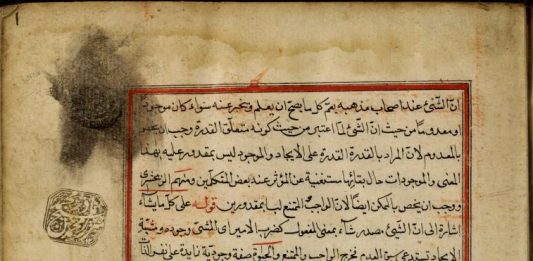 انّ الشّئ عند اصحاب مذهبه يعم كل ما يصح ان يعلم ويخبر عنه سواء كان موجودا
او معدوما من حيث انّ الشّئ لمّا اعتبر من حيث كونه متعلق القدرة وجب ان
بالمعدوم لان المراد بالقدرة القدرة على الايجاد والموجود ليس بمقدور عليه بهذا
المعنى والموجودات حال بقائها مستغنية عن المؤثر عند بعض المتكلمين ومنهم الزمخشرى
ووجب ان يختص بالممكن ايضا لان الواجب والممتنع ليسا بمقدورين قوله على كل ما يشاء
اشارة الى انّ الشّئ مصدر شاء بمعنى المفعول كضرب الامير اى المشئ وجوده
الايجاد تستدعى سبق العدم تخرج الواجب والممتنع صفة وجودية زائدة على نفس الذات